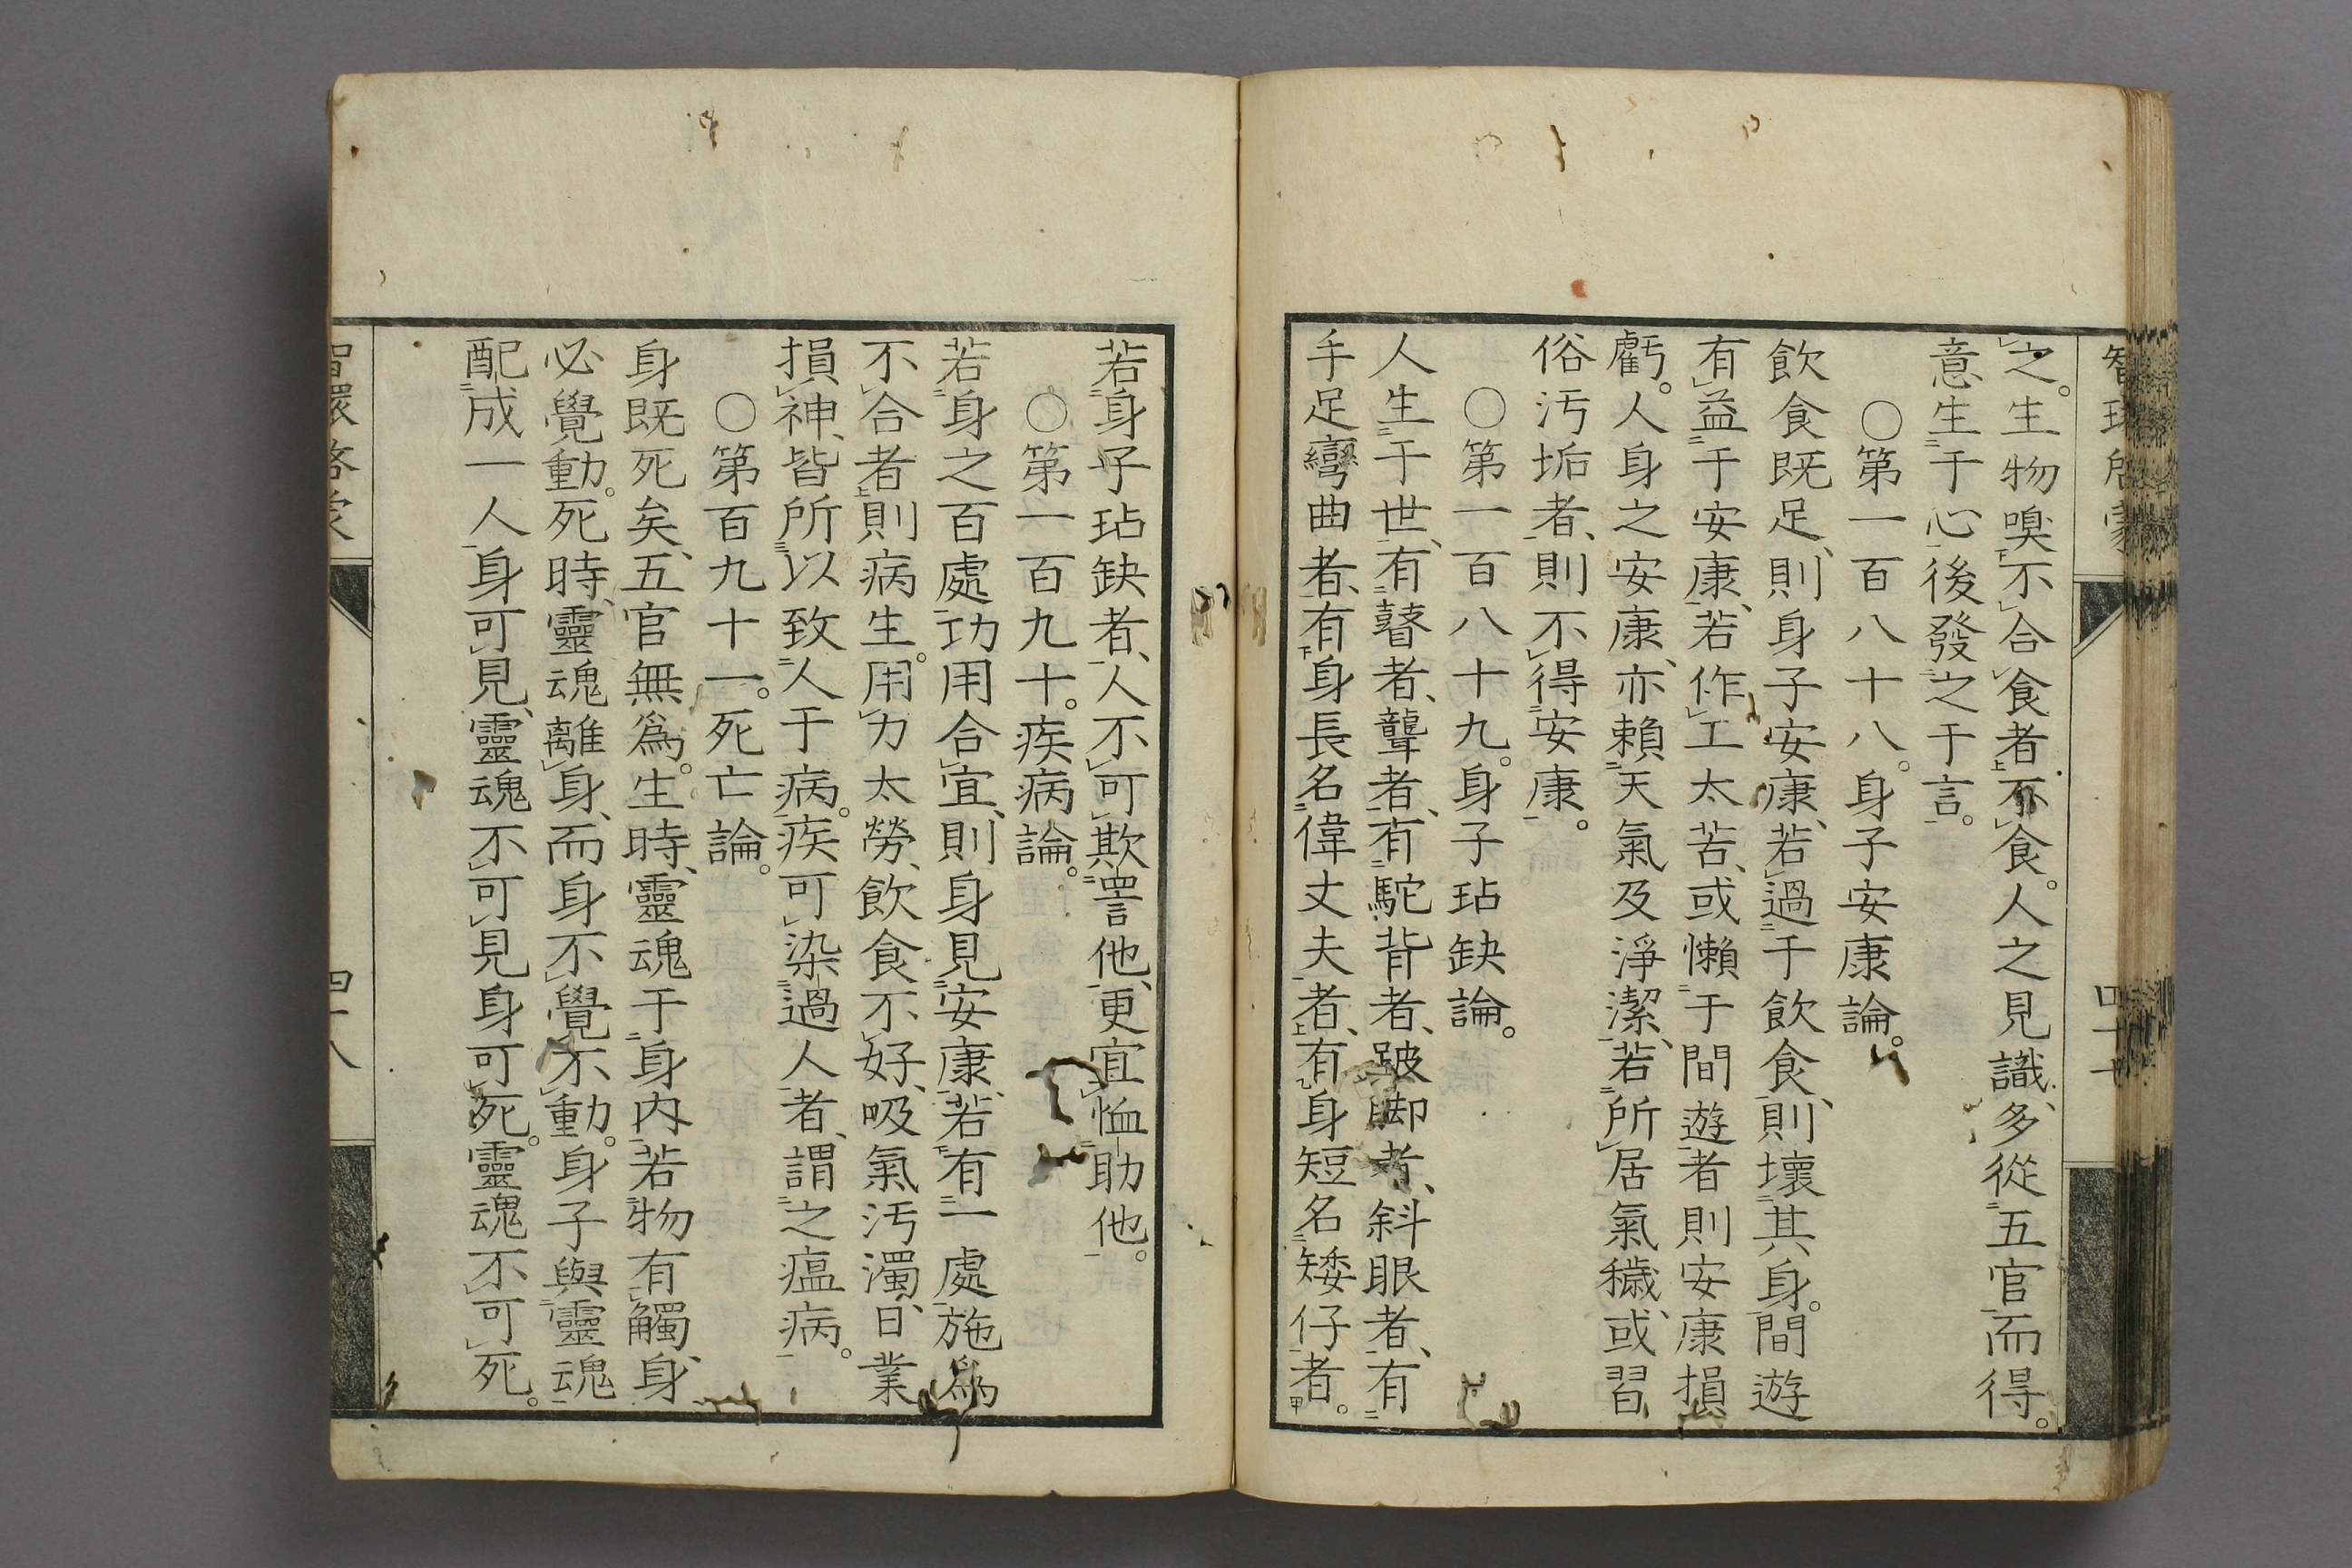 之。生物嗅、不合食者不食。人之見識、多從五官而得。
意生于心後發之于言。
○第一百八十八。身子安康論。
飲食既足、則身子安康、若過于飲食、則壞其身。間遊
有益于安康、若作工太苦、或懶于間遊者則安康損
虧。人身之安康、亦賴天氣及淨潔、若所居氣穢、或習
俗污垢者、則不得安康。
○第一百八十九。身子玷缺論。
人生于世、有瞽者、聾者、有駝背者、跛脚者、斜眼者、有
手足彎曲者、有身長名偉丈夫者、有身短名矮仔者。
若身子玷缺者、人不可欺詈他、更宜恤助他。
○第一百九十。疾病論。
若身之百處、功用合宜、則身見安康、若有一處施爲
不合者、則病生。用力太勞、飲食不好、吸氣汚濁、日業
損神、皆所以致人于病。疾可染過人者、謂之瘟病。
○第百九十一。死亡論。
身既死矣、五官無爲。生時、靈魂于身内、若物有觸、身
必覺動。死時、靈魂離身、而身不覺不動。身子與靈魂
配成一人、身可見、靈魂不可見、身可死。靈魂不可死。
四十八